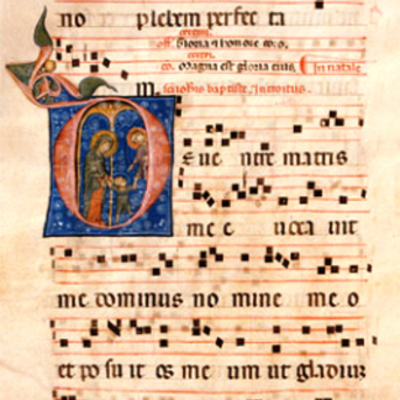 no plebem perfec ta
off. Gloria et honore co. o.
co. Magna est gloria eius. In natale
m. sci iohis baptiste, Introitus.
De uen tre matris
me e uoca uit
me dominus no mine me o
et po su it os me um ut gladium